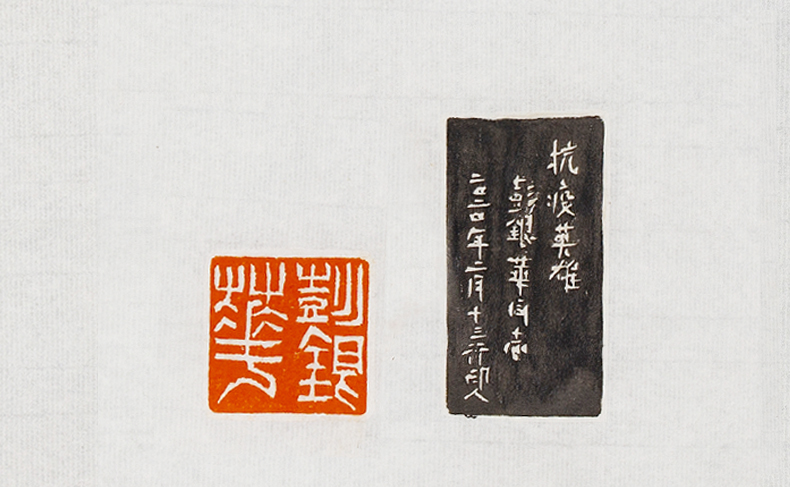 彭銀
華
抗疫英雄
彭銀華同志
二〇二〇年二月十三行印人